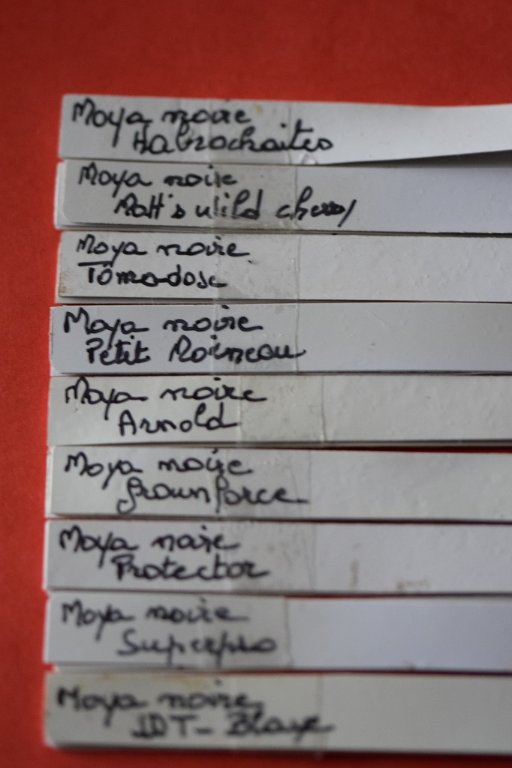 Moya noire
Habrochaites
Moya noire
Matt's wild cherry
Moya noire
Tômadose
Moya noire
Petit Moineau
Moya noire
Arnold
Moya noire
Grownforce
Moya noire
Protector
Moya noire
Superpro
Moya noire
IDT-